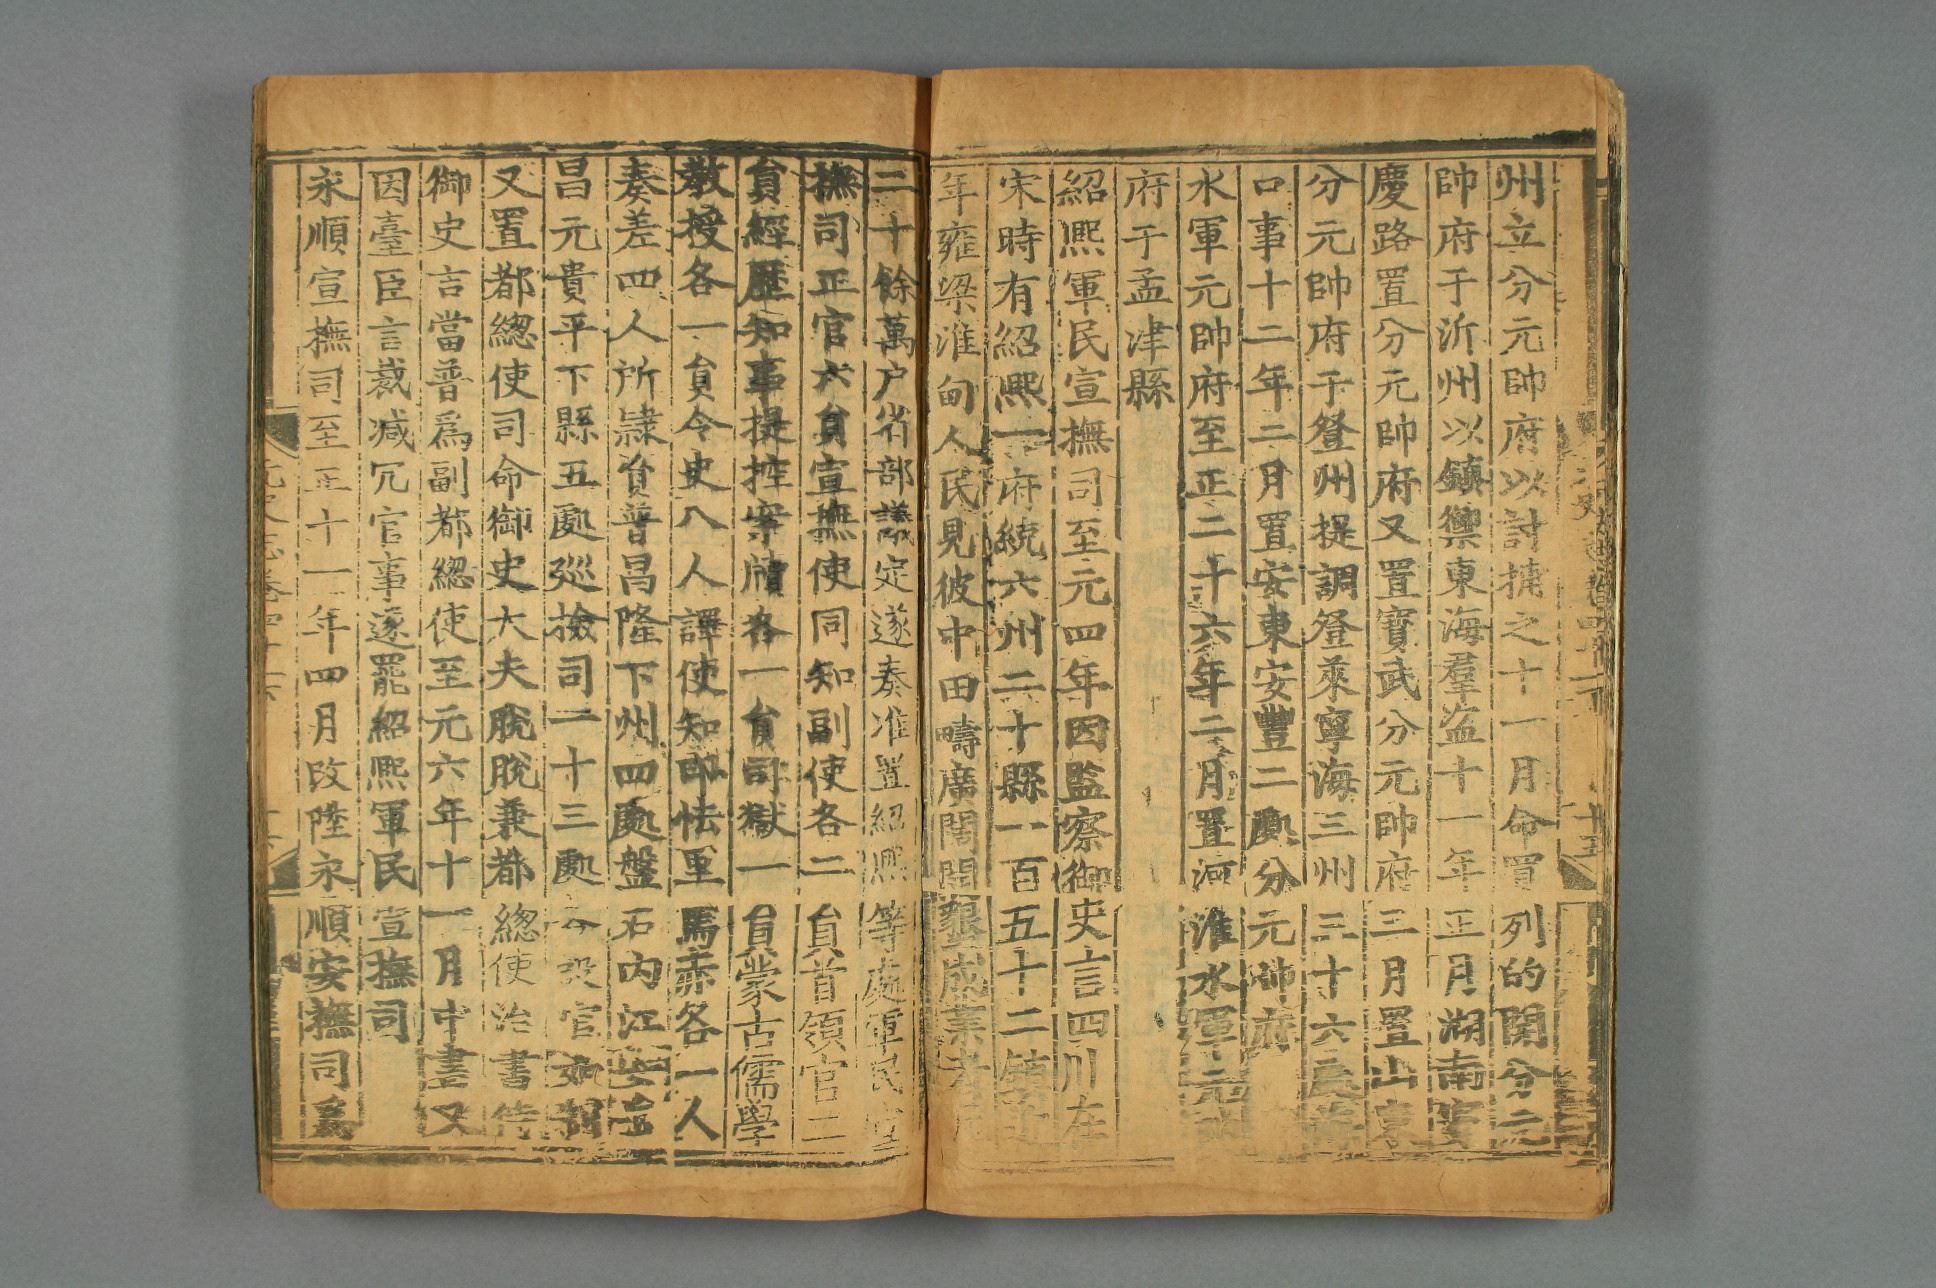 州立分元帥府以討捕之十一月命買列的開分元
帥府于沂州以鎮禦東海羣盗十一年正月湖南寳
慶路置分元帥府又置寳武分元帥府三月置山東
分元帥府于登州提調登萊寧海三州三十六處
口事十二年二月置安東安豐二處分元帥府
水軍元帥府至正二十六年二月置河淮水軍元帥
府于孟津縣
紹熙軍民宣撫司至元四年因監察御史言四川在
宋時有紹熙一府統六州二十縣一百五十二鎮
年雍梁淮甸人民見彼中田疇廣闊開墾成業者
二十餘萬户省部議定遂奏准置紹熙等處軍民宣
撫司正官六員宣撫使同知副使各二員首領官二
員經歷知事提控案牘各一員司獄一員蒙古儒學
教授各一員令史八人譯使知印怯里馬赤各一人
奏差四人所隷資普昌隆下州四處盤石内江
昌元貴平下縣五處廵檢司一十三處
又置都緫使司命御史大夫脫脫兼都緫使治書侍
御史吉當普爲副都緫使至元六年十一月中書又
因臺臣言裁减冗官事遂罷紹熙軍民宣撫司
永順宣撫司至正十一年四月改陞永順安撫司爲